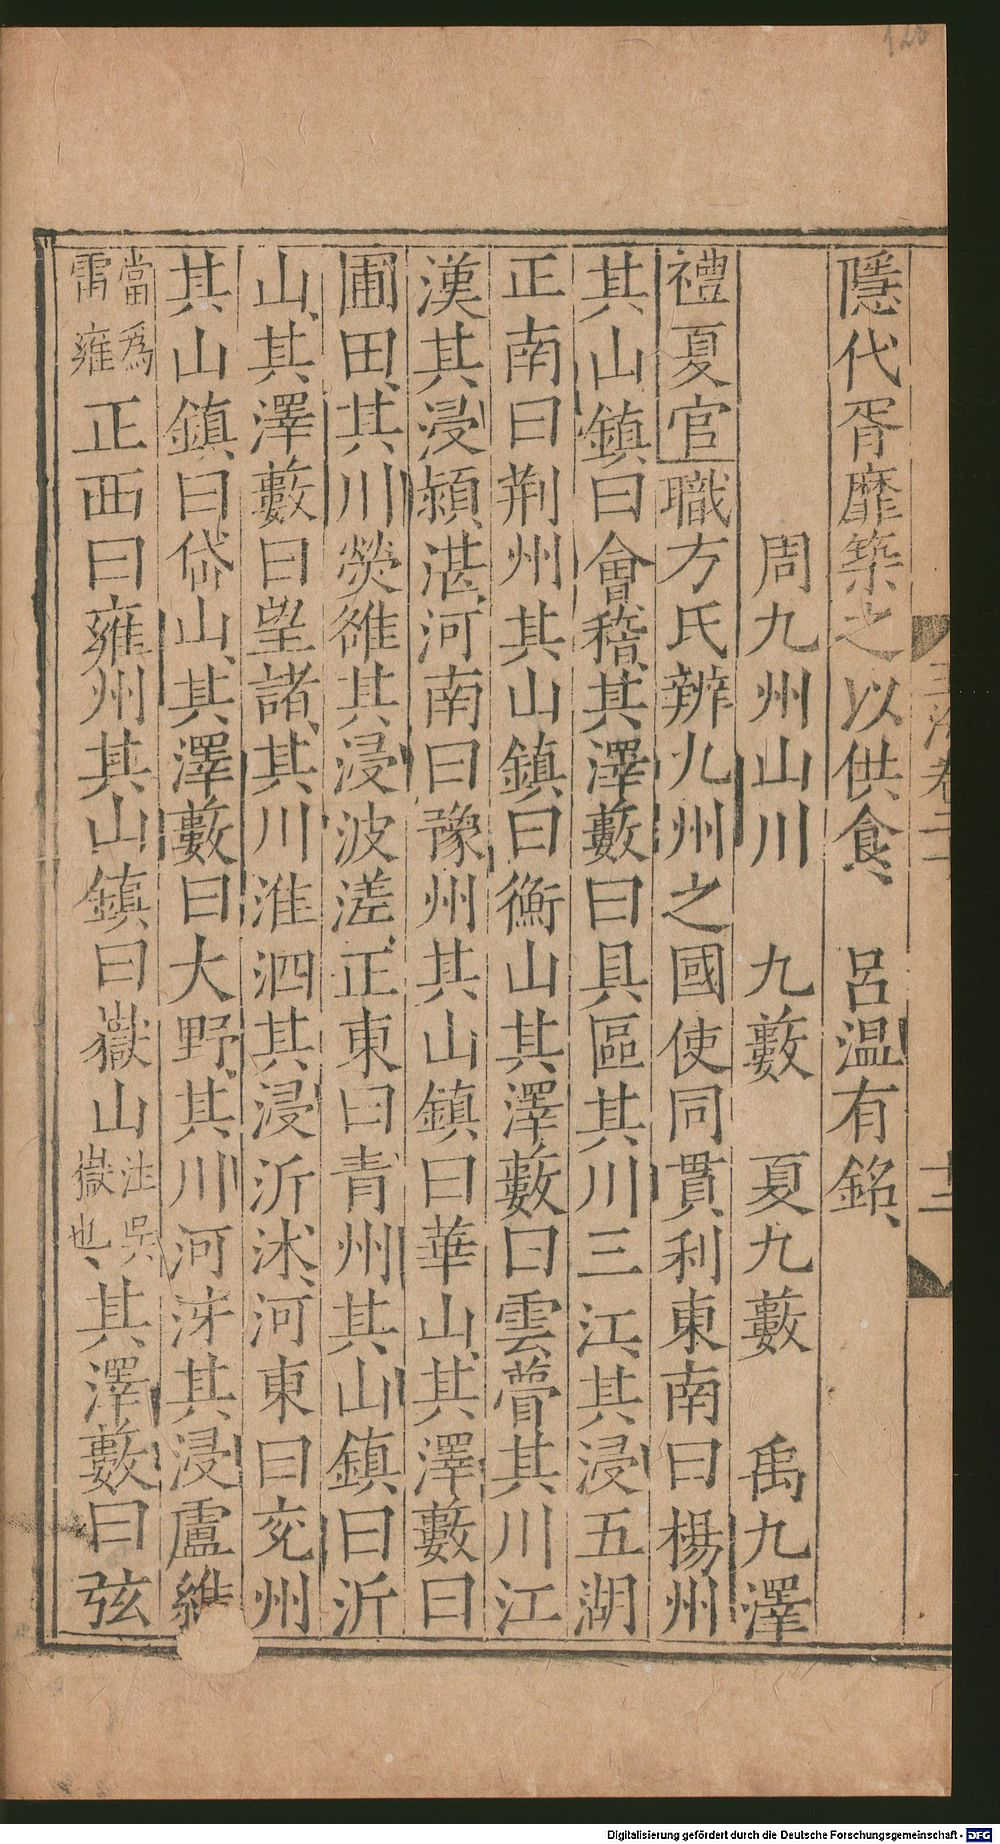 隱代胥靡築之以供食、　呂温有銘、
周九州山川　九藪　夏九藪　禹九澤
禮夏官職方氏辨九州之國使同貫利東南曰楊州
其山鎮曰會稽、其澤藪曰具區其川三江、其浸五湖
正南曰荆州其山鎮曰衡山其澤藪曰雲瞢其川江
漢其浸潁湛、河南曰豫州其山鎮曰華山、其澤藪曰
圃田、其川熒雒其浸波溠、正東曰青州其山鎮曰沂
山、其澤藪曰望諸、其川淮泗其浸沂沭、河東曰兖州
其山鎮曰岱山、其澤藪曰大野、其川河泲其浸盧維
當爲雷雍正西曰雍州其山鎮曰嶽山注吳嶽也、其澤藪曰弦
玉海卷二十
十二
Digitalisierung gefördert durch die Deutsche Forschungsgemeinschaft - DFG